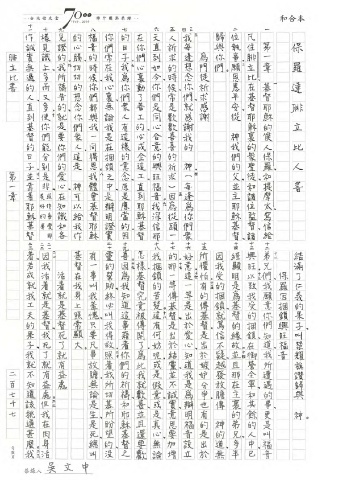 和合本
70
保羅達腓立比人書
第一章 基督耶穌的僕人保羅和提摩太寫信給
凡住腓立比在基督耶穌裏的眾聖徒和諸位監督諸
位執事願恩惠平安從 神我們的父並主耶穌基督
歸與你們
為門徒祈求感謝
我每逢想念你們就感謝我的 神每逢為你們眾
人祈求的時候常是歡歡喜喜的祈求因為從頭一
天直到如今你們是同心合意的興旺福音我深信那
在你們心裏動了善工的必成全這工直到耶穌基督
的日子我為你們眾人有這樣的意念原是應當的因
你們常在我心裏無論我是在捆鎖之中是辯明證實
福音的時候你們都與我一同得恩我體會基督耶穌
的心腸切切的想念你們眾人這是 神可以給我作
見證的我所禱告的就是要你們的愛心在知識和各
樣見識上多而又多使你們能分別是非
作誠實無過的人直到基督的日子並靠著耶穌基督
結滿了仁義的果子叫榮耀讚美歸與 神
保羅因捆鎖興旺福音
弟兄們我願意你們知道我所遭遇的事更是叫福音
興旺以致我受的捆鎖在御營全軍和其餘的人中已
經顯明是為基督的緣故並且那在主裏的弟兄多半
因我受的捆鎖就篤信不疑越發放膽傳 神的道無
所懼怕有的傳基督是出於嫉妒分爭也有的是出於
好意這一等是出於愛心知道我是為辯明福音設立
的那一等傳基督是出於結黨並不誠實意思要加增
我捆鎖的苦楚這有何妨呢或是假意或是真心無論
怎樣基督究竟被傳開了為此我就歡喜並且還要歡
喜因為我知道這事藉著你們的祈禱和耶穌基督之
靈的幫助終必叫我得救照著我所切慕所盼望的沒
有一事叫我羞愧只要凡事放膽無論是生是死總叫
基督在我身上照常顯大
活著就是基督死了就有益處
因我活著就是基督我死了就有益處但我在肉身活
著若成就我工夫的果子我就不知道該挑選甚麼我
腓立比書 第一章 二百七十七
謄錄人 吳文中